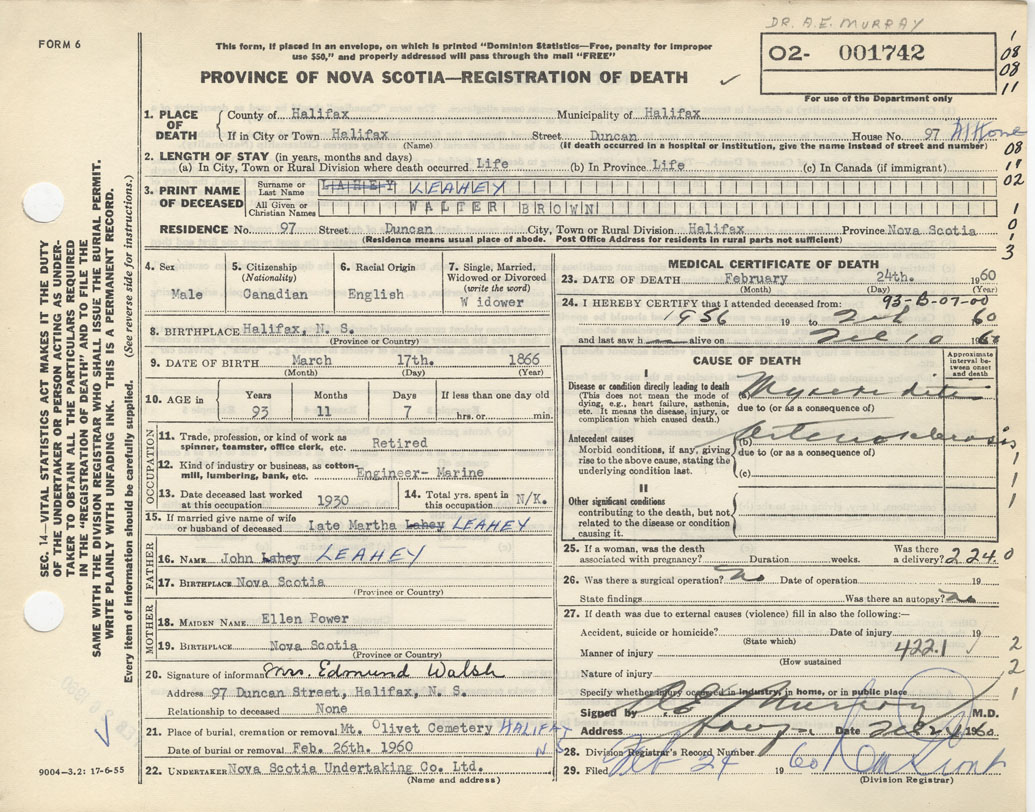 DR. A.E. MURRAY
FORM 6
This form, if placed in an envelope, on which is printed "Dominion Statistics—Free, penalty for improper
use $50," and properly addressed will pass through the mail "FREE"
O2- 001742
PROVINCE OF NOVA SCOTIA—REGISTRATION OF DEATH
For use of the Department only
1. PLACE OF DEATH County of Halifax Municipality of Halifax
If in City or Town Halifax Street Duncan House No. 97 At Home
(Name) (If death occurred in a hospital or institution, give the name instead of street and number)
2. LENGTH OF STAY (in years, months and days)
(a) In City, Town or Rural Division where death occurred Life (b) In Province Life (c) In Canada (if immigrant)
3. PRINT NAME OF DECEASED Surname or Last Name LAHEY LEAHEY
All Given or Christian Names WALTER BROWN
RESIDENCE No. 97 Street Duncan City, Town or Rural Division Halifax Province Nova Scotia
(Residence means usual place of abode. Post Office Address for residents in rural parts not sufficient)
4. Sex
Male
5. Citizenship
(Nationality)
Canadian
6. Racial Origin
English
7. Single, Married, Widowed or Divorced
(write the word)
Widower
8. BIRTHPLACE Halifax, N. S.
(Province or Country)
9. DATE OF BIRTH March 17th. 1866
(Month) (Day) (Year)
10. AGE in Years Months Days If less than one day old
93 11 7 hrs. or min.
OCCUPATION
11. Trade, profession, or kind of work as spinner, teamster, office clerk, etc. Retired
12. Kind of industry or business, as cotton-mill, lumbering, bank, etc. Engineer- Marine
13. Date deceased last worked at this occupation 1930
14. Total yrs. spent in this occupation N/K.
15. If married give name of wife or husband of deceased Late Martha Lahey LEAHEY
FATHER
16. NAME John Lahey LEAHEY
17. BIRTHPLACE Nova Scotia
(Province or Country)
MOTHER
18. MAIDEN NAME Ellen Power
19. BIRTHPLACE Nova Scotia
(Province or Country)
20. Signature of informant Mrs. Edmund Walsh
Address 97 Duncan Street, Halifax, N. S.
Relationship to deceased None
21. Place of burial, cremation or removal Mt. Olivet Cemetery HALIFAX N S
Date of burial or removal Feb. 26th. 1960
22. UNDERTAKER Nova Scotia Undertaking Co. Ltd.
(Name and address)
MEDICAL CERTIFICATE OF DEATH
23. DATE OF DEATH February 24th. 1960
(Month) (Day) (Year)
24. I HEREBY CERTIFY that I attended deceased from: 93-B-07-00
1956 19 to Feb 60
and last saw h alive on Feb 10 1960
CAUSE OF DEATH
Approximate interval between onset and death
I
Disease or condition directly leading to death
(This does not mean the mode of dying, e.g., heart failure, asthenia, etc. It means the disease, injury, or complication which caused death.)
Myocarditis
due to (or as a consequence of)
Antecedent causes
Morbid conditions, if any, giving rise to the above cause, stating the underlying condition last.
(b) Arteriosclerosis
due to (or as a consequence of)
(c)
II
Other significant conditions
contributing to the death, but not related to the disease or condition causing it.
25. If a woman, was the death associated with pregnancy? Duration weeks. Was there a delivery? 2240
26. Was there a surgical operation? no Date of operation 19
State findings Was there an autopsy? no
27. If death was due to external causes (violence) fill in also the following:—
Accident, suicide or homicide? Date of injury 19
(State which)
Manner of injury 422.1
(How sustained
Nature of injury
Specify whether injury occurred in industry, in home, or in public place
Signed by A E Murray M.D.
Address Date Feb 24 1960
28. Division Registrar's Record Number
29. Filed Feb 24 1960
(Division Registrar)
SEC. 14—VITAL STATISTICS ACT MAKES IT THE DUTY
OF THE UNDERTAKER OR PERSON ACTING AS UNDER-
TAKER TO OBTAIN ALL THE PARTICULARS REQUIRED
IN THE "REGISTRATION OF DEATH" AND TO FILE THE
SAME WITH THE DIVISION REGISTRAR WHO SHALL ISSUE THE BURIAL PERMIT.
WRITE PLAINLY WITH UNFADING INK. THIS IS A PERMANENT RECORD.
Every item of information should be carefully supplied. (See reverse side for instructions.)
9004—3.2: 17-6-55
1
08
08
11
08
11
02
1
0
3
1
1
1
1
2
2
1